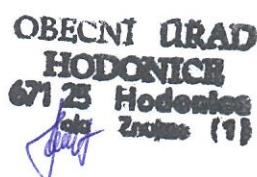 OBECNÍ ÚŘAD
HODONICE
671 25 Hodonice
Znojmo (1)